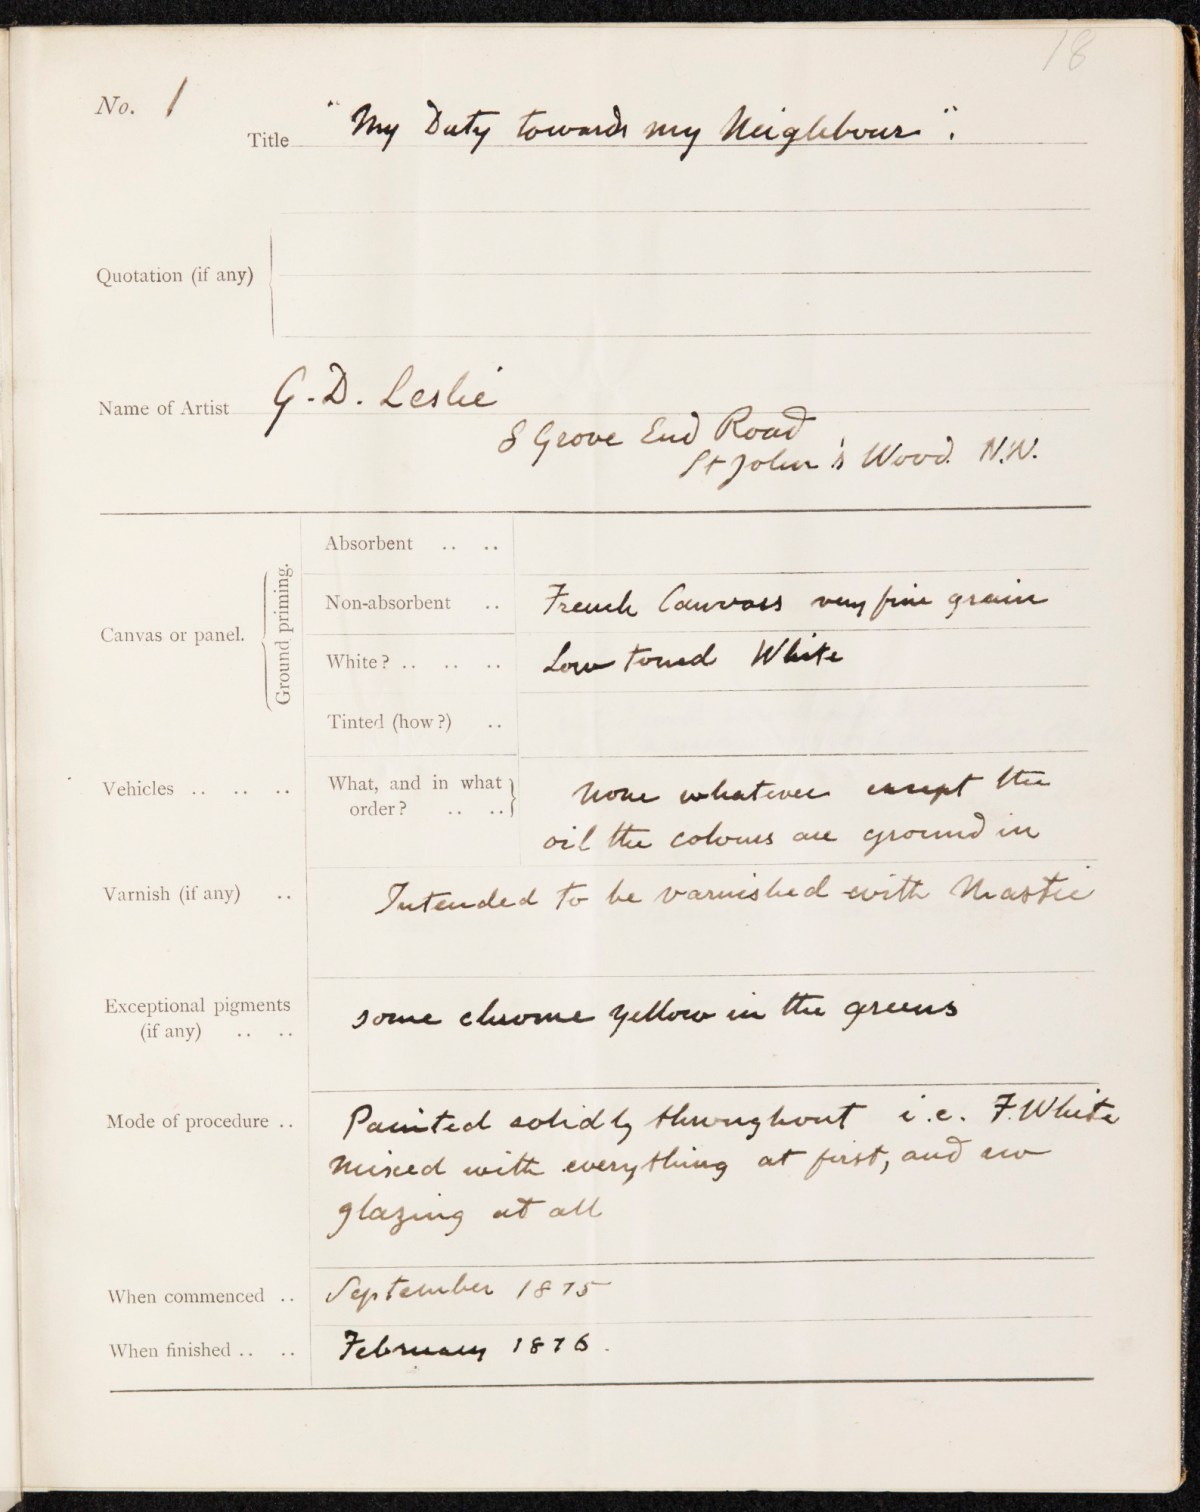 18
No. 1
Title "My Duty towards my Neighbour".
Quotation (if any)
Name of Artist G. D. Leslie
8 Grove End Road
St John's Wood N.W.
Canvas or panel. Ground priming.
Absorbent .. ..
Non-absorbent .. French Canvass very fine grain
White? .. .. .. Low toned White
Tinted (how?) ..
Vehicles .. .. .. What, and in what order? .. .. None whatever except the
oil the colours are ground in
Varnish (if any) .. Intended to be varnished with Mastic
Exceptional pigments
(if any) .. .. some chrome yellow in the greens
Mode of procedure .. Painted solidly throughout i.e. F. White
mixed with everything at first, and no
glazing at all
When commenced .. September 1875
When finished .. .. February 1876.